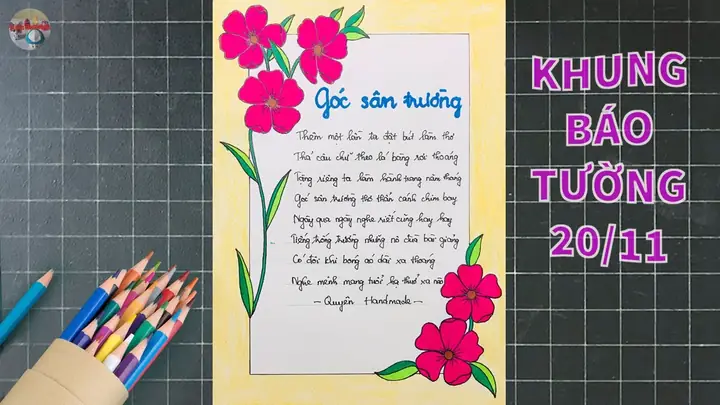 Góc sân trường
Thêm một lần ta đặt bút làm thơ
Thả câu chữ theo lá bàng rơi thoáng
Tặng riêng ta làm hành trang năm tháng
Góc sân trường thơ thẩn cánh chim bay
Ngày qua ngày nghe riết cũng hay hay
Tiếng trống trường nhưng nô đùa bài giảng
Có đôi khi bóng áo dài xa thoáng
Nghe mênh mang tuổi hạ thuở xa nào
- Quyên Handmade -
KHUNG
BÁO
TƯỜNG
20/11